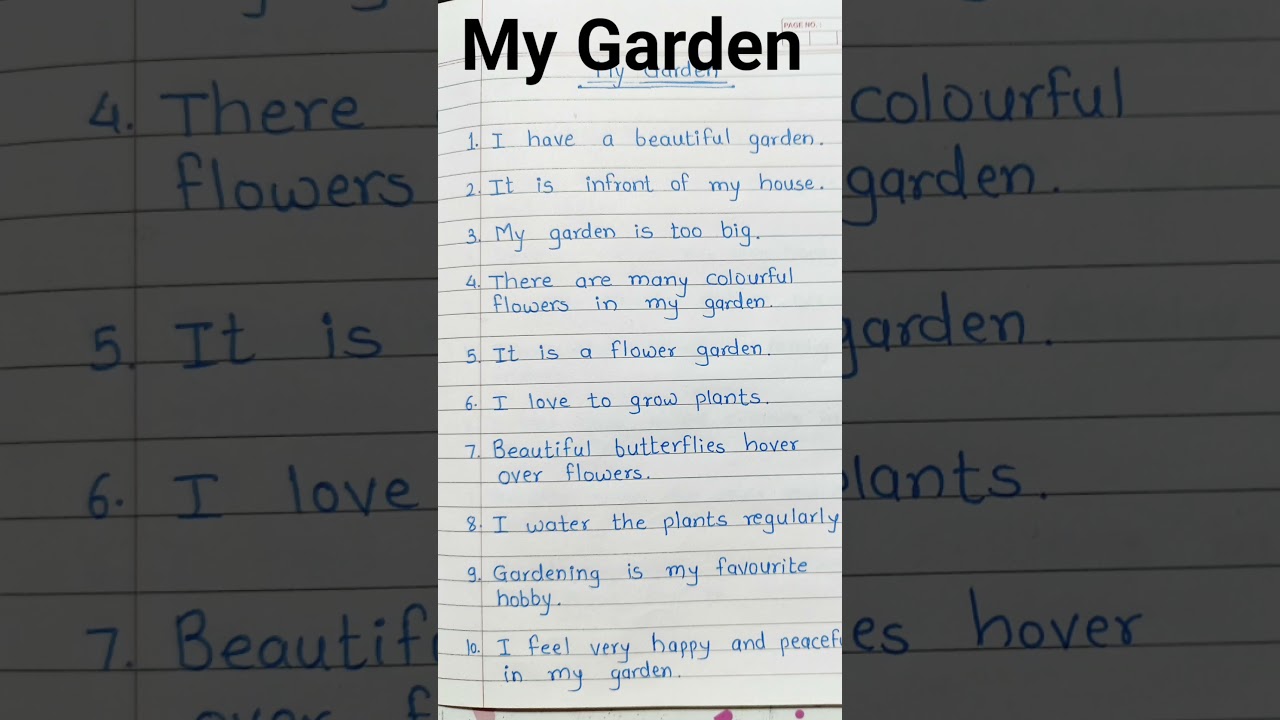 My Garden
PAGE NO.:
My Garden
1. I have a beautiful garden.
2. It is infront of my house.
3. My garden is too big.
4. There are many colourful
flowers in my garden.
5. It is a flower garden.
6. I love to grow plants.
7. Beautiful butterflies hover
over flowers.
8. I water the plants regularly
9. Gardening is my favourite
hobby.
10. I feel very happy and peacef
in my garden.
4. There
flowers
5. It is
6. I love
7. Beautif
over f
colourful
garden.
garden.
plants.
es hover